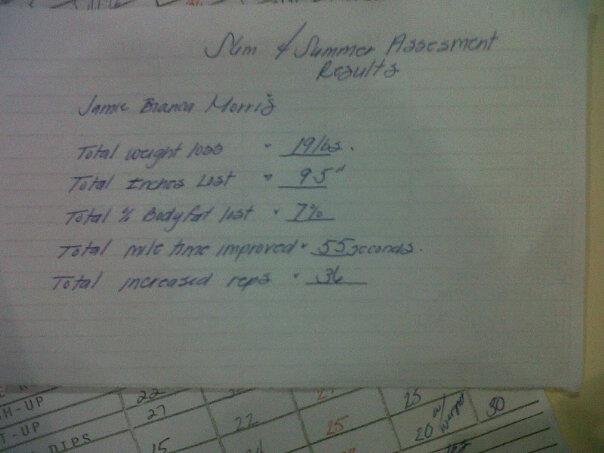 Slim 4 Summer Assesment
Results
Jamie Bianca Morris
Total weight loss - 19 lbs.
Total Inches Lost - 9.5"
Total % Bodyfat lost - 7%
Total mile time improved - 55 seconds.
Total increased reps - 36
22 25
H-UP 27 22 25 20 w/ weight 30
T-UP
DIPS 15